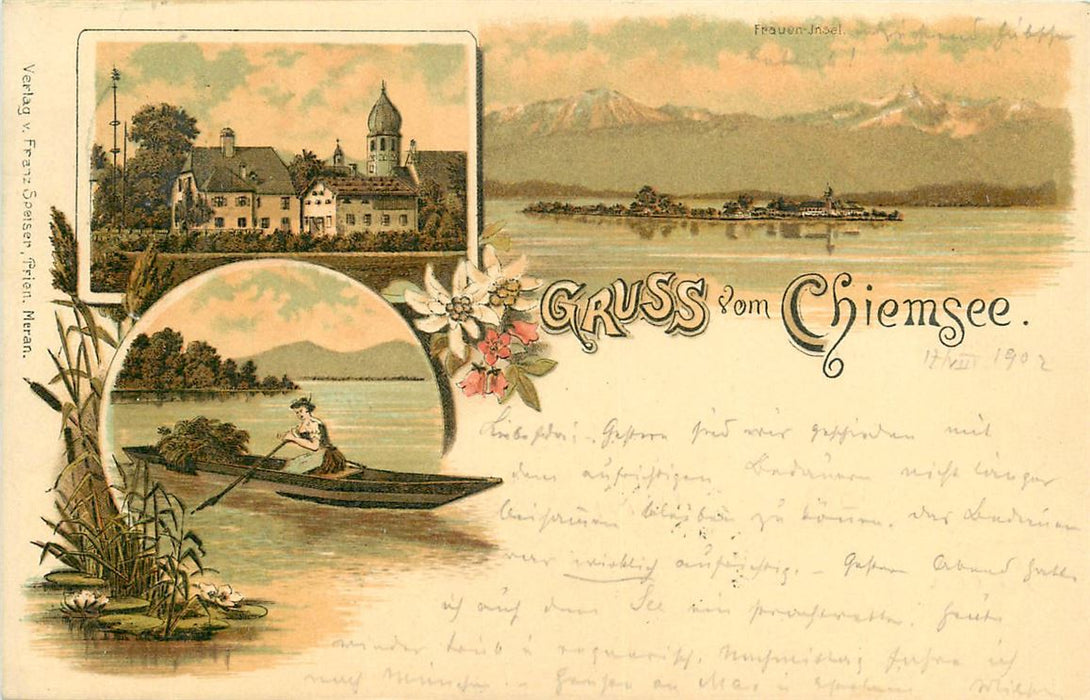 Frauen-Insel.
Verlag v. Franz Speiser, Prien. Meran.
GRUSS vom Chiemsee.
17/VIII 1902
Gestern sind wir geschieden mit
dem aufrichtigen Bedauern nicht länger
beisammen bleiben zu können. Das Bedauern
war wirklich aufrichtig. – Gestern Abend hatte
ich auf dem See ein Prachtwetter. Heute
wieder trüb u regnerisch. Nachmittag fahre ich
nach München. –